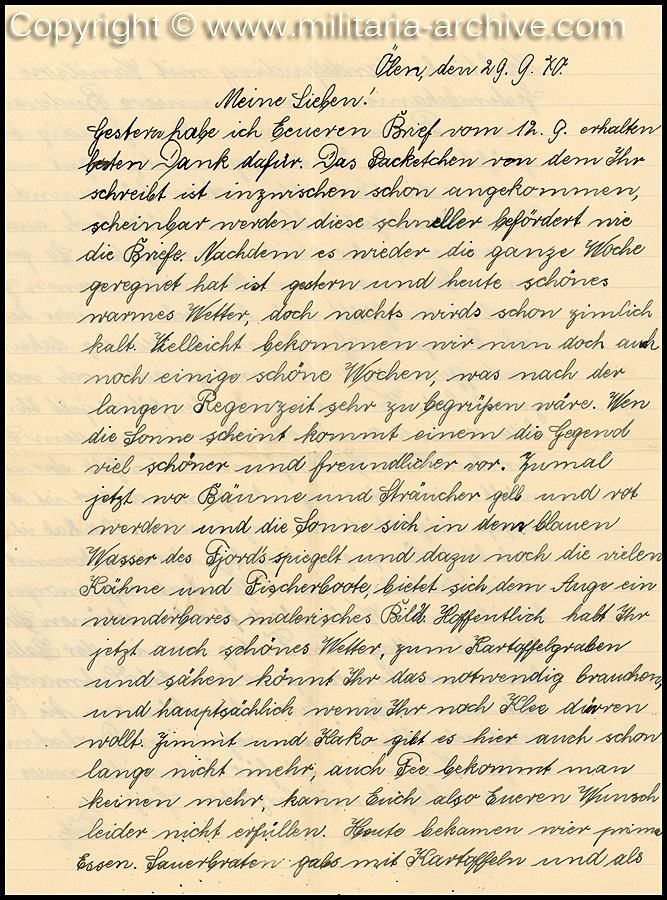 Copyright © www.militaria-archive.com
Ölen, den 29. 9. 40.
Meine Lieben!
Gestern habe ich Eeueren Brief vom 12. 9. erhalten
besten Dank dafür. Das Packetchen von dem Ihr
schreibt ist inzwischen schon angekommen,
scheinbar werden diese schneller befördert wie
die Briefe. Nachdem es wieder die ganze Woche
geregnet hat ist gestern und heute schönes
warmes Wetter, doch nachts wirds schon zimlich
kalt. Vielleicht bekommen wir nun doch auch
noch einige schöne Wochen, was nach der
langen Regenzeit sehr zu begrüßen wäre. Wen
die Sonne scheint kommt einem die Gegend
viel schöner und freundlicher vor. Zumal
jetzt wo Bäume und Sträucher gelb und rot
werden und die Sonne sich in dem blauen
Wasser des Fjords spiegelt und dazu noch die vielen
Kähne und Fischerboote, bietet sich dem Auge ein
wunderbares malerisches Bild. Hoffentlich habt Ihr
jetzt auch schönes Wetter, zum Kartoffelgraben
und sähen könnt Ihr das notwendig brauchen,
und hauptsächlich wenn Ihr noch Klee dürren
wollt. Zimmt und Kakao gibt es hier auch schon
lange nicht mehr, auch Tee bekommt man
keinen mehr, kann Euch also Eueren Wunsch
leider nicht erfüllen. Heute bekamen wier prima
Essen. Sauerbraten gabs mit Kartoffeln und als